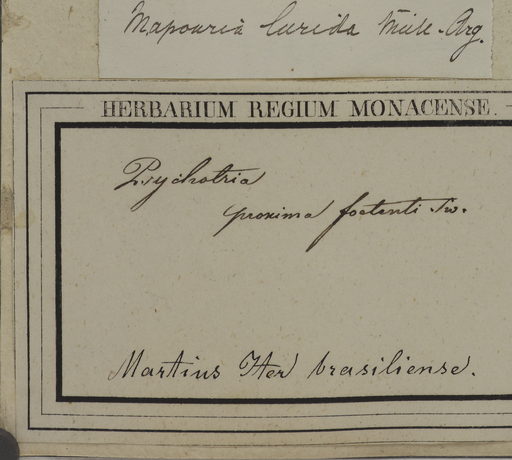 Mapouria lurida Müll. Arg.
HERBARIUM REGIUM MONACENSE.
Psychotria
proxima foetenti Sw.
Martius Iter brasiliense.